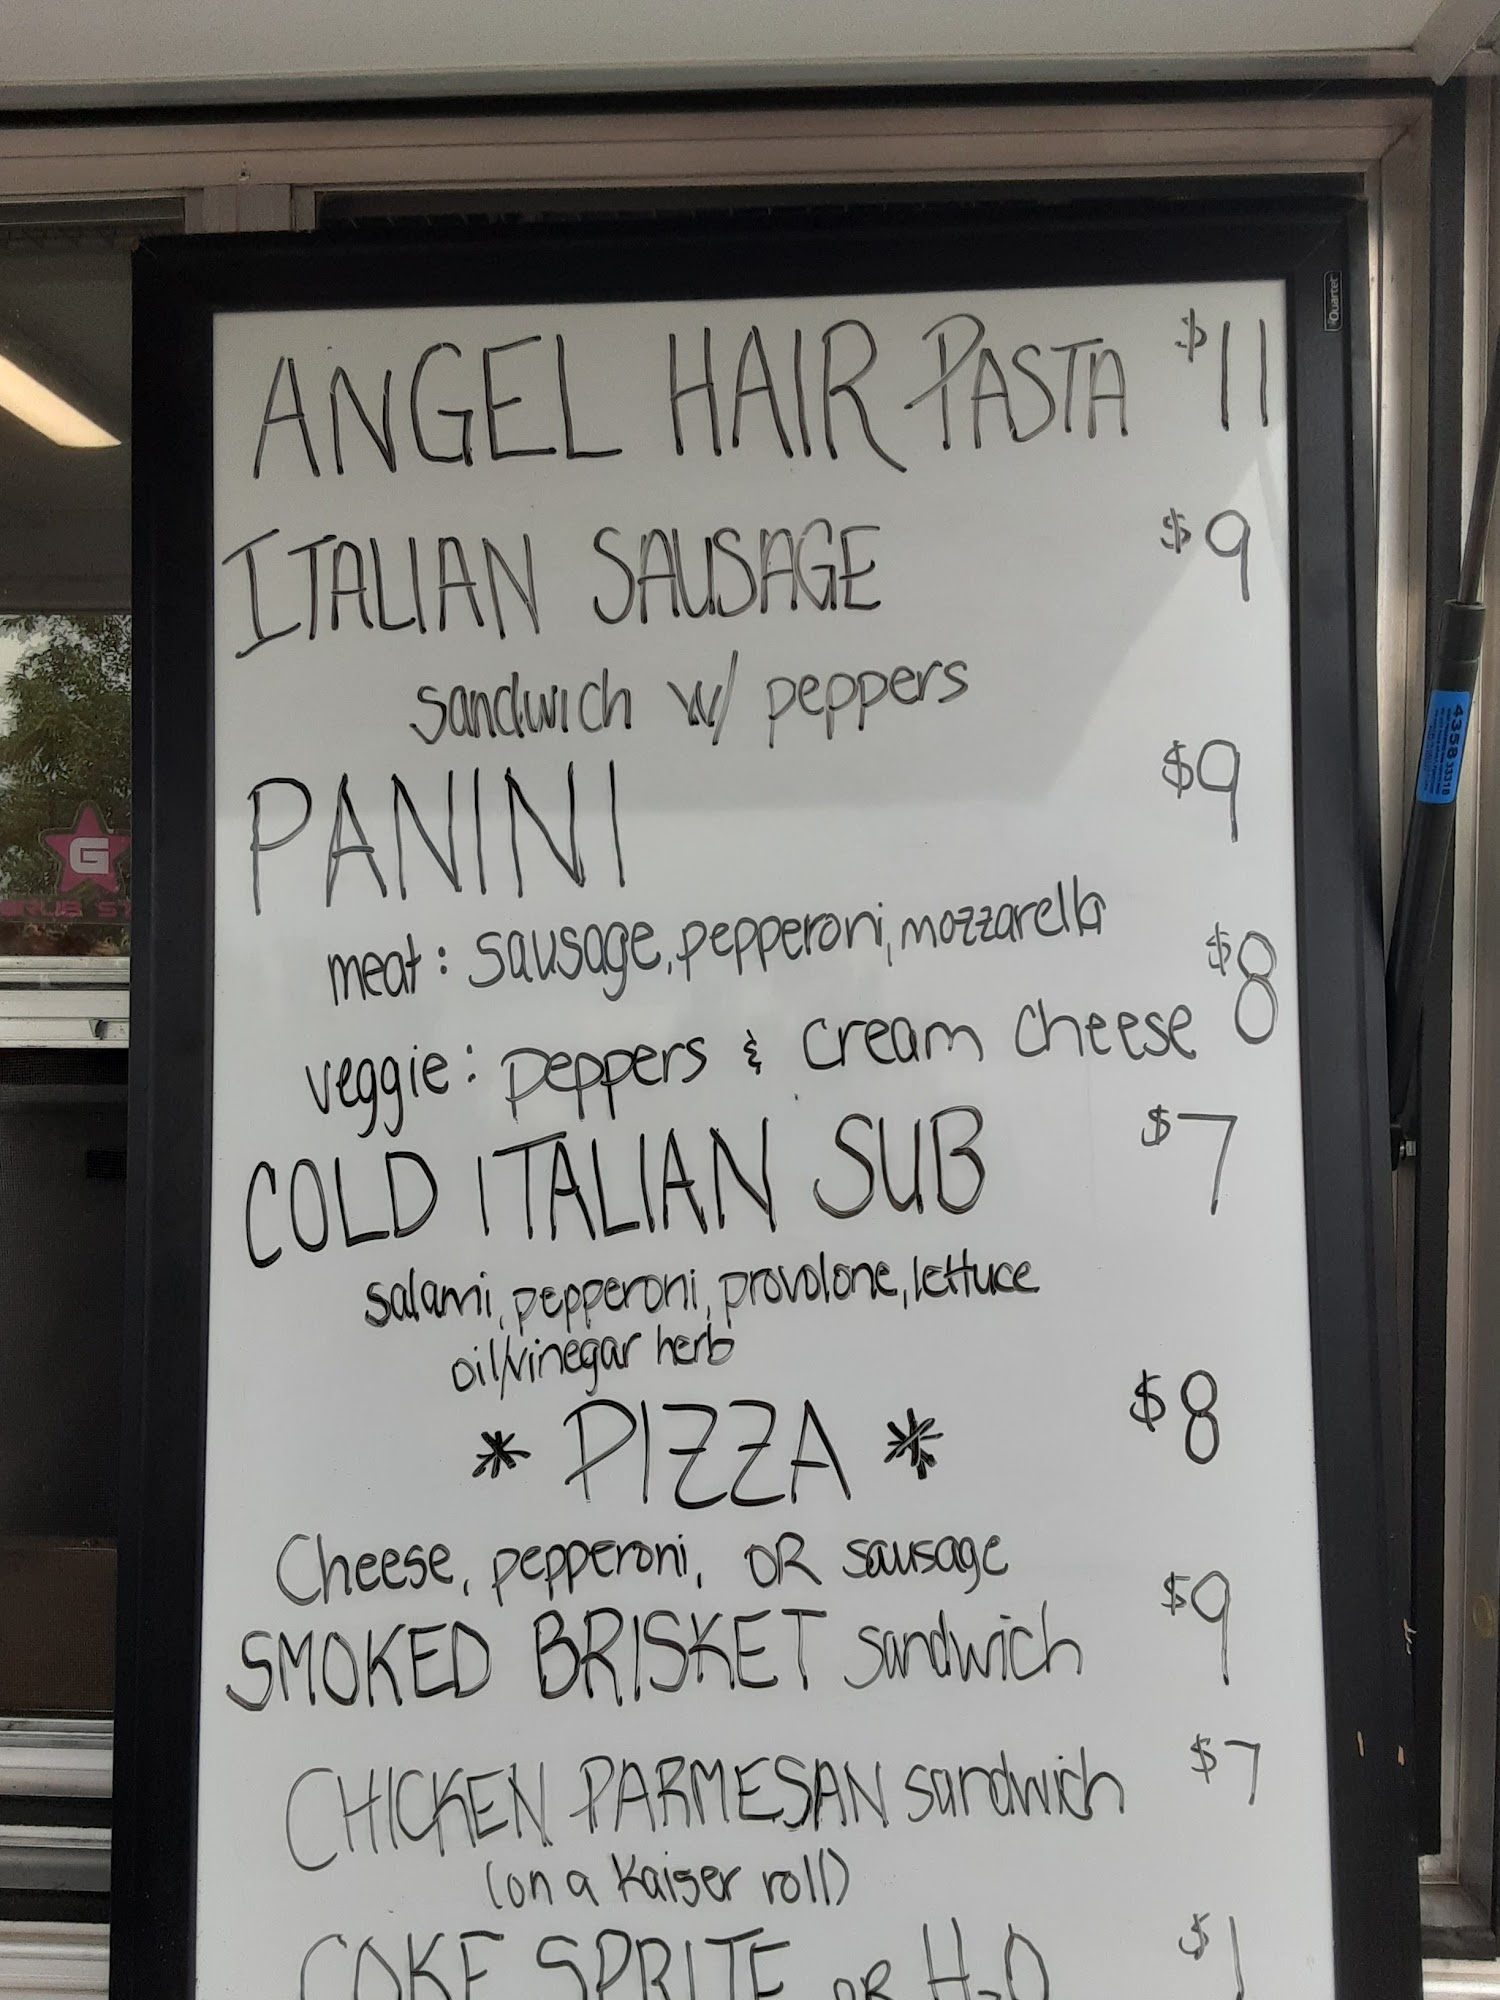 Quartet
ANGEL HAIR PASTA $11
ITALIAN SAUSAGE $9
sandwich w/ peppers
PANINI $9
meat: sausage, pepperoni, mozzarella
veggie: peppers & cream cheese $8
COLD ITALIAN SUB $7
salami, pepperoni, provolone, lettuce
oil/vinegar herb
* PIZZA * $8
Cheese, pepperoni, OR sausage
SMOKED BRISKET sandwich $9
CHICKEN PARMESAN sandwich $7
(on a Kaiser roll)
COKE SPRITE OR H2O $1
G
4358